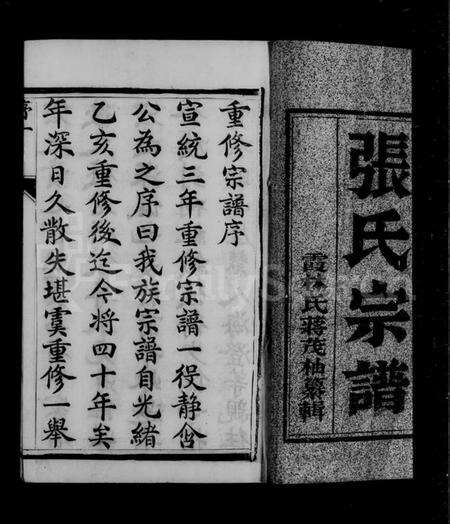 張氏宗譜
霞林氏蔣茂柚纂輯
重修宗譜序
宣統三年重修宗譜一役静谷
公為之序曰我族宗譜自光緒
乙亥重修後迄今將四十年矣
年深日久散失堪虞重修一舉